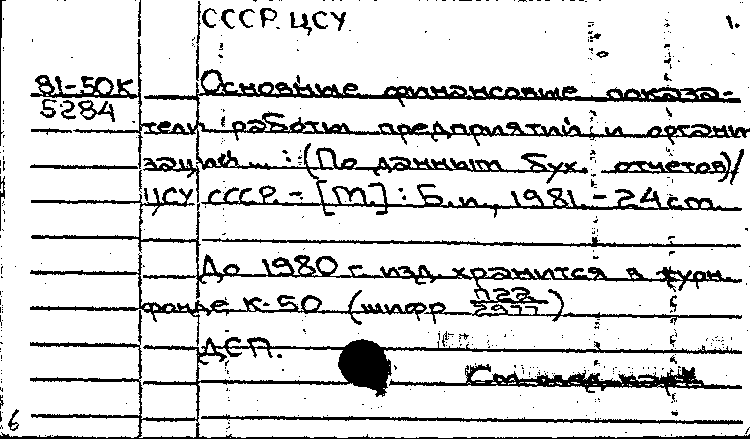 СССР. ЦСУ 1.
81-50К Основные финансовые показа-
5284
тели работы предприятий и органи
заций... : (По данным бух. отчетов)/
ЦСУ СССР. - [М.] : Б.и., 1981. - 24 ст.
До 1980 г. изд. хранится в журн.
фонде К-50 (шифр П22/2977)
ДСП.
См. след. карт.
6